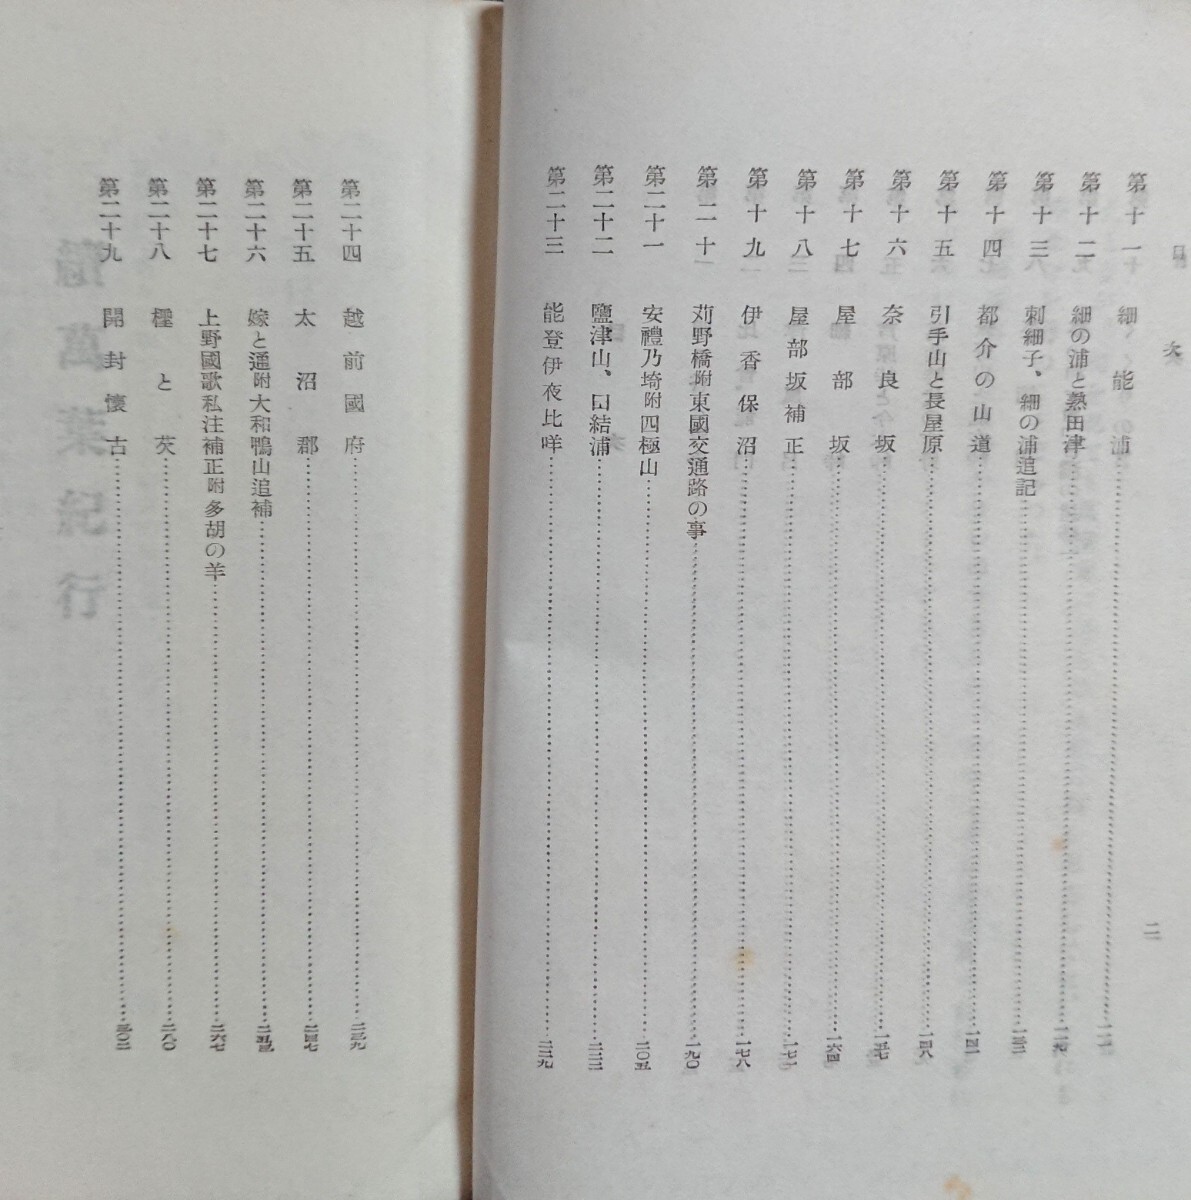 目次
二
第十一 細く能浦
第十二 細の浦と熱田津
第十三 刺細子、細の浦追記
第十四 都介の山道 一四一
第十五 引手山と長屋原 一四八
第十六 奈良坂 一五七
第十七 屋部坂 一六四
第十八 屋部坂補正 一七一
第十九 伊香保沼 一七八
第二十 苅野橋附東國交通路の事 一九〇
第二十一 安禮乃埼附四極山 二〇五
第二十二 鹽津山、田結浦 二二二
第二十三 能登伊夜比咩 二二九
第二十四 越前國府 二三九
第二十五 太沼郡 二四七
第二十六 嫁と通附大和鴨山追補 二五三
第二十七 上野國歌私注補正附多胡の羊 二六七
第二十八 櫁と芡 二八〇
第二十九 開封懷古 三〇二
續萬葉紀行